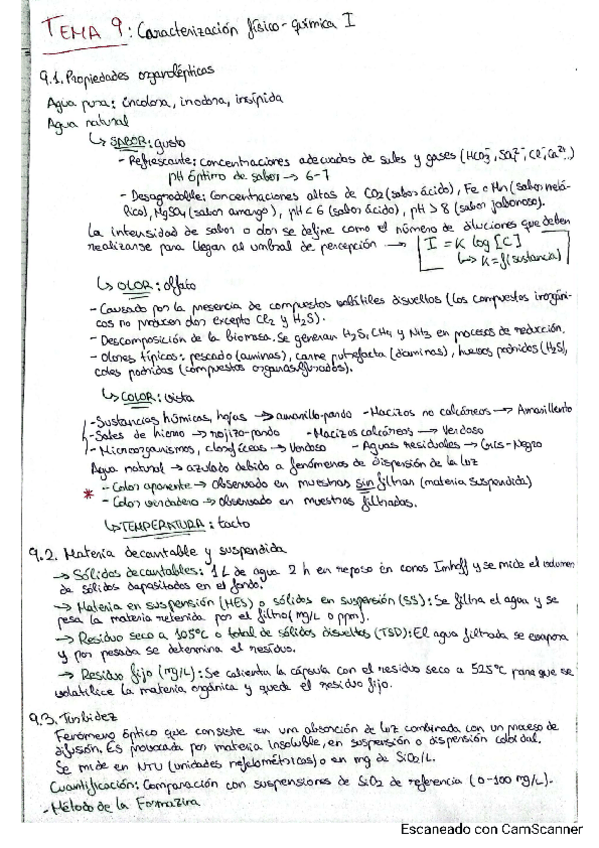 TEMA 9: Caracterización físico-química I
9.1. Propiedades organolépticas
Agua pura: incolora, inodora, insípida
Agua natural
↳ SABOR: gusto
- Refrescante: concentraciones adecuadas de sales y gases (HCO3-, SO4 2-, Cl-, Ca2+..)
pH óptimo de sabor → 6-7
- Desagradable: Concentraciones altas de CO2 (sabor ácido), Fe o Mn (sabor metá-
lico), MgSO4 (sabor amargo), pH < 6 (sabor ácido), pH > 8 (sabor jabonoso).
La intensidad de sabor o olor se define como el número de diluciones que deben
realizarse para llegar al umbral de percepción → I = K log [C]
↳ K = f(sustancia)
↳ OLOR: olfato
- Causado por la presencia de compuestos volátiles disueltos (los compuestos inorgáni-
cos no producen olor excepto Cl2 y H2S).
- Descomposición de la biomasa. Se generan H2S, CH4 y NH3 en procesos de reducción.
- Olores típicos: pescado (aminas), carne putrefacta (diaminas), huevos podridos (H2S),
coles podridas (compuestos organosulfurados).
↳ COLOR: vista
- Sustancias húmicas, hojas → amarillo-pardo - Macizos no calcáreos → Amarillento
- Sales de hierro → rojizo-pardo - Macizos calcáreos → Verdoso
- Microorganismos, clorofíceas → Verdoso - Aguas residuales → Gris-Negro
Agua natural → azulado debido a fenómenos de dispersión de la luz
* - Color aparente → observado en muestras sin filtrar (materia suspendida)
- Color verdadero → observado en muestras filtradas.
↳ TEMPERATURA: tacto
9.2. Materia decantable y suspendida
→ Sólidos decantables: 1 L de agua 2 h en reposo en conos Imhoff y se mide el volumen
de sólidos depositados en el fondo.
→ Materia en suspensión (MES) o sólidos en suspensión (SS): Se filtra el agua y se
pesa la materia retenida por el filtro (mg/L o ppm).
→ Residuo seco a 105ºC o total de sólidos disueltos (TSD): El agua filtrada se evapora
y por pesada se determina el residuo.
→ Residuo fijo (mg/L): Se calienta la cápsula con el residuo seco a 525ºC para que se
volatilice la materia orgánica y quede el residuo fijo.
9.3. Turbidez
Fenómeno óptico que consiste en una absorción de luz combinada con un proceso de
difusión. Es provocada por materia insoluble, en suspensión o dispersión coloidal.
Se mide en NTU (unidades nefelométricas) o en mg de SiO2/L.
Cuantificación: Comparación con suspensiones de SiO2 de referencia (0-100 mg/L).
- Método de la Formazina
Escaneado con CamScanner